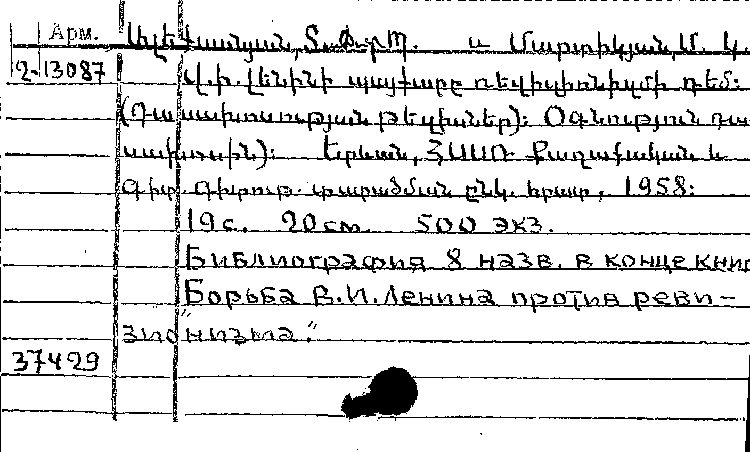 Арм. Ալեքսանյան, Տ. Փ. և Մարտիկյան, Ս. Կ.
2-13087 Վ. Ի. Լենինի պայքարը ռեվիզիոնիզմի դեմ:
(Դասախոսության թեզիսներ): Օգնություն դա
սախոսին): Երևան, ՀՍՍՌ Քաղաքական և
Գիտ. գիտութ. տարածման ընկ. հրատ., 1958:
19 с. 20 см. 500 экз.
Библиография 8 назв. в конце книг
Борьба В.И. Ленина против реви-
зио"низма."
37429